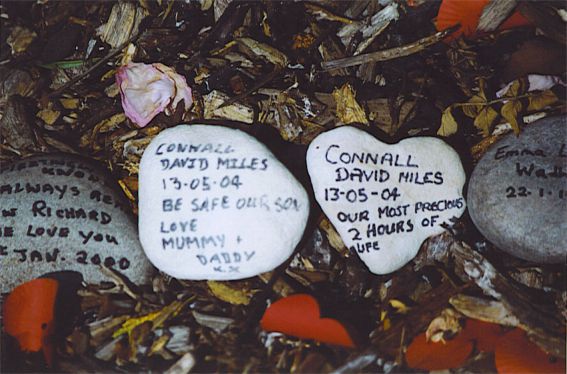 KNOW
ALWAYS BE
RICHARD
WE LOVE YOU
JAN. 2000
CONNALL
DAVID MILES
13-05-04
BE SAFE OUR SON
LOVE
MUMMY +
DADDY
x x
CONNALL
DAVID MILES
13-05-04
OUR MOST PRECIOUS
2 HOURS OF
LIFE
Emma
22·1·